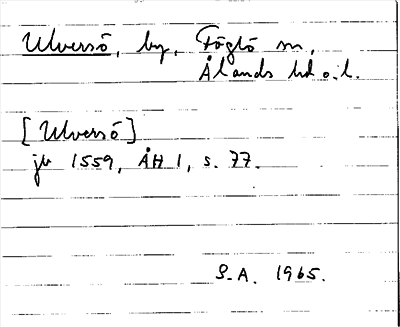 Ulversö, by, Föglö sn,
Ålands hd o. l.
[Ulversö]
jb 1559, ÅH 1, s. 77.
S.A. 1965.